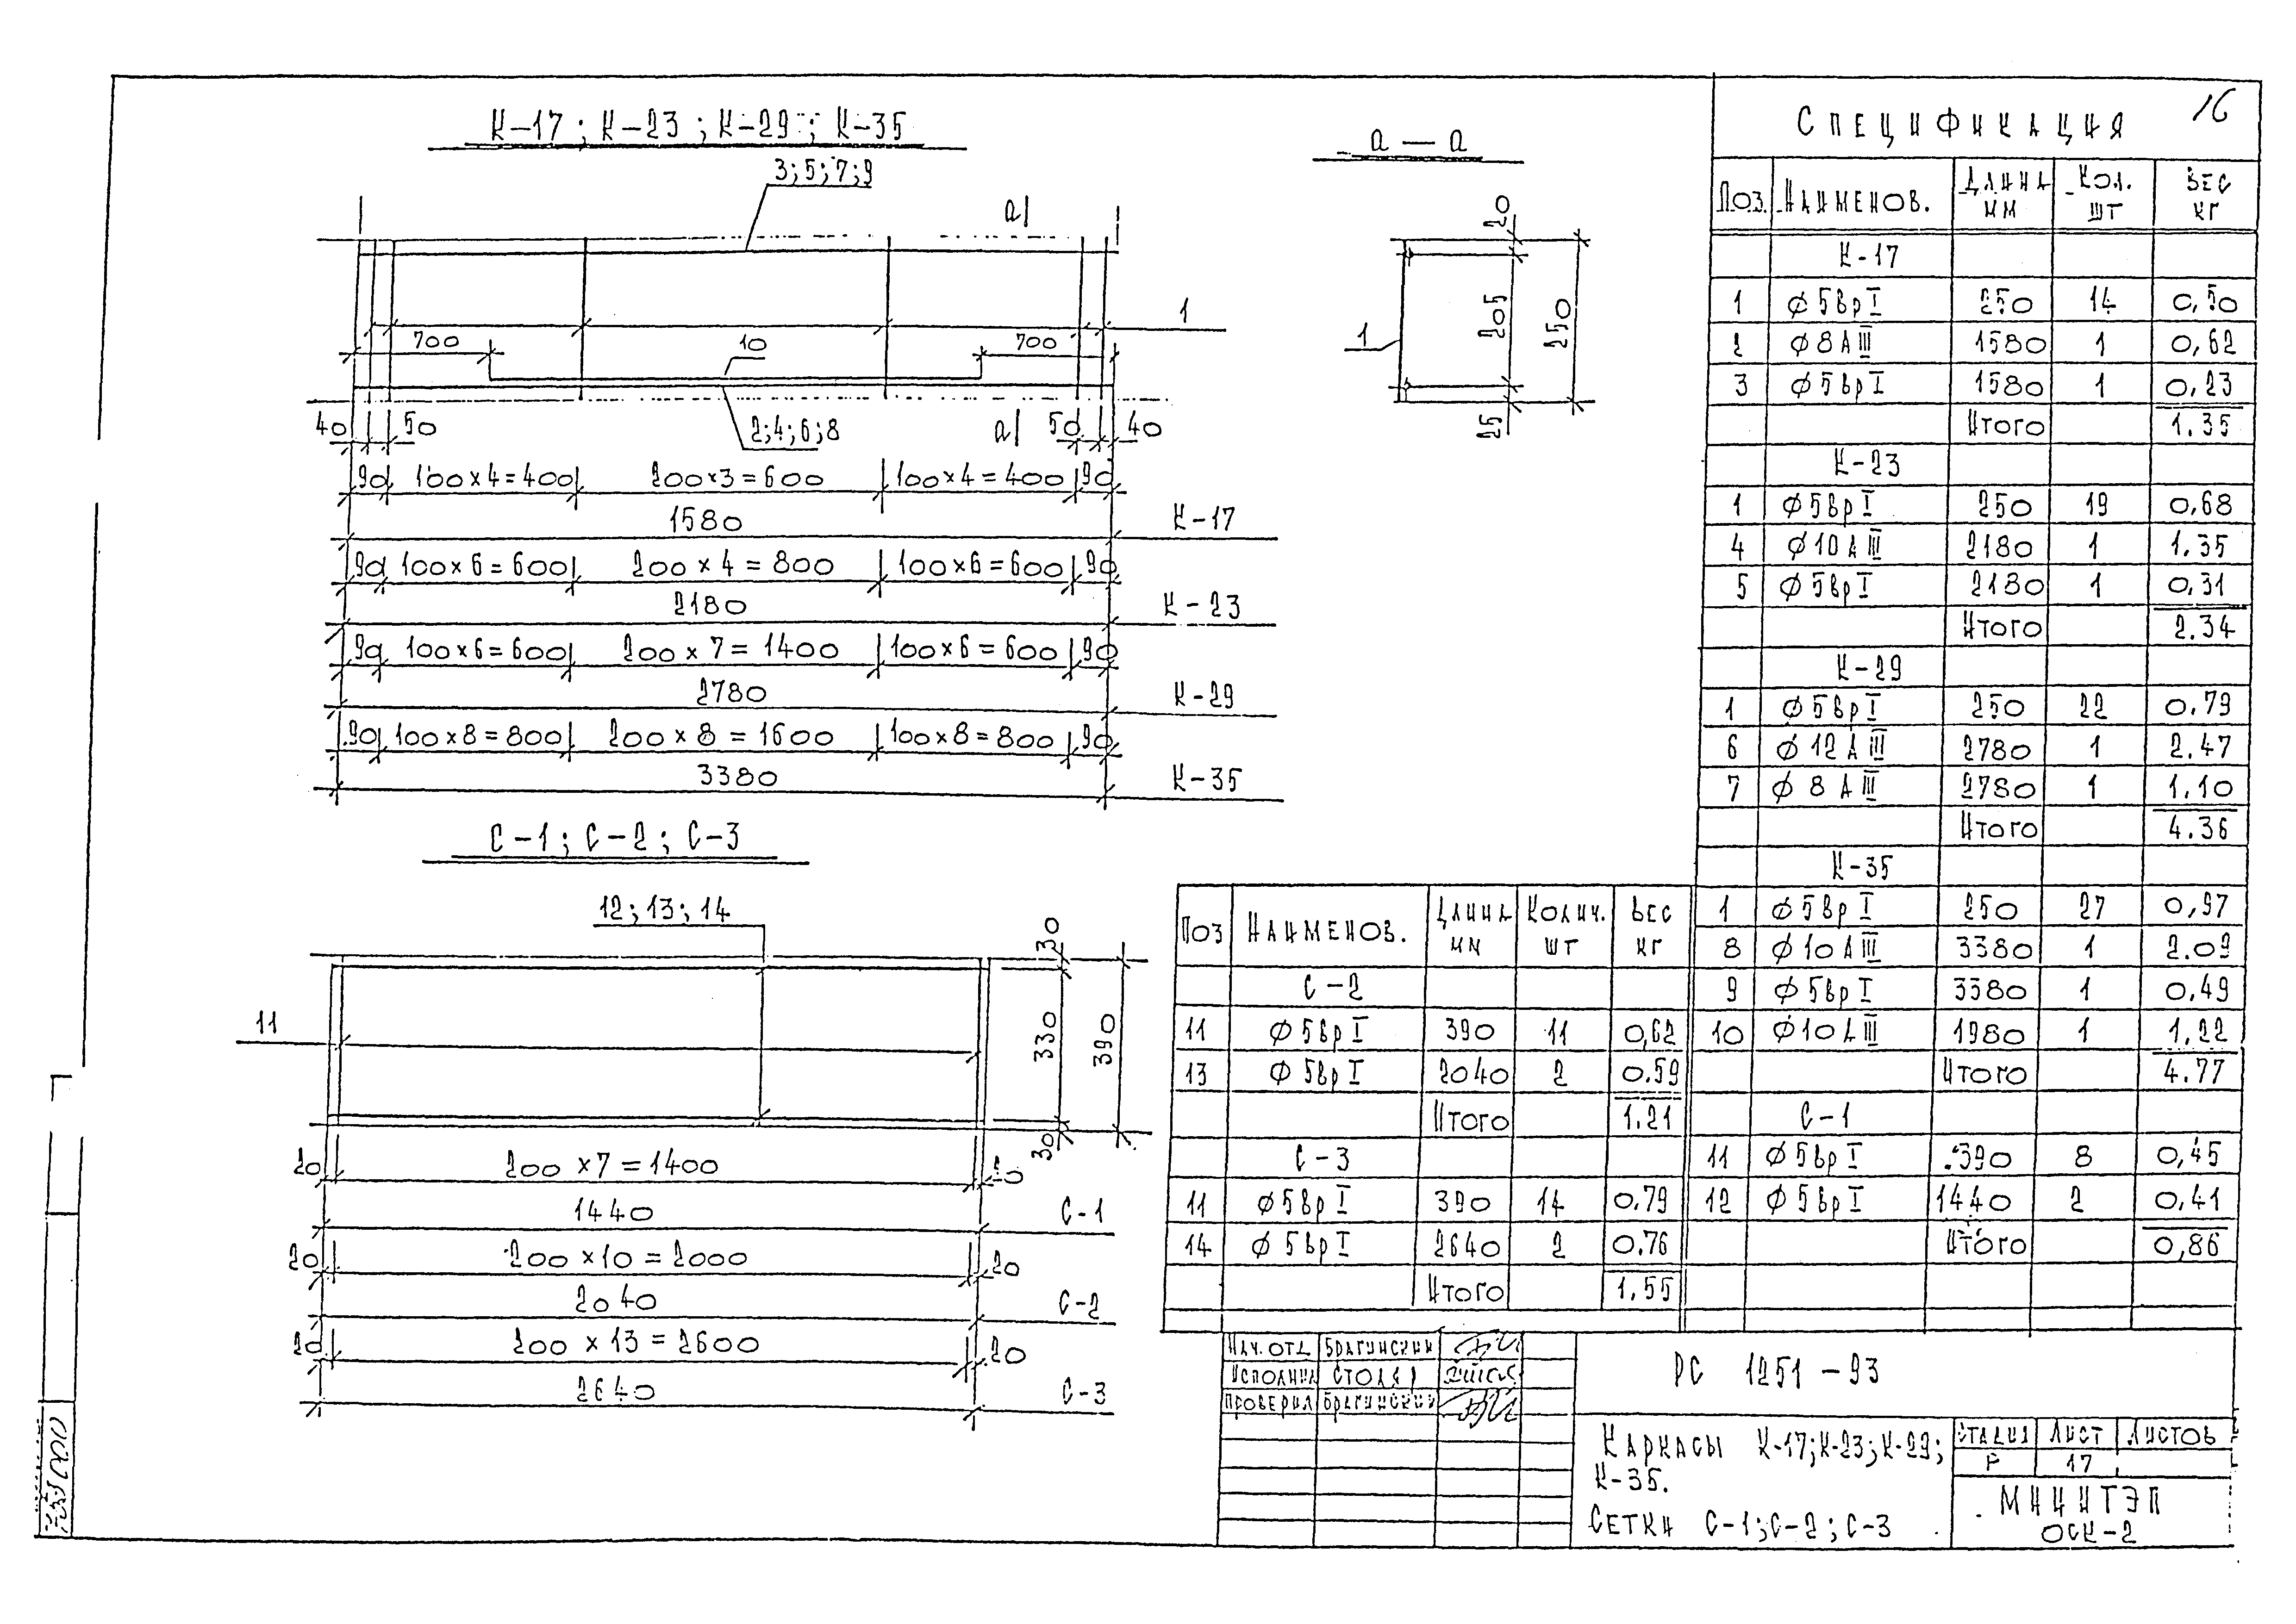 16
К-17; К-23; К-29; К-35
3;5;7;9
а
1
700
10
700
40
50
2;4;6;8
а
50
40
90
100×4=400
200×3=600
100×4=400
90
1580
К-17
90
100×6=600
200×4=800
100×6=600
90
2180
К-23
90
100×6=600
200×7=1400
100×6=600
90
2780
К-29
90
100×8=800
200×8=1600
100×8=800
90
3380
К-35
а — а
20
1
205
250
25
С-1; С-2; С-3
12;13;14
11
30
330
390
30
20
200×7=1400
20
1440
С-1
20
200×10=2000
20
2040
С-2
20
200×13=2600
20
2640
С-3
Спецификация
Поз. Наименов. Длина мм Кол. шт Вес кг
К-17
1 ϕ5врI 250 14 0,50
2 ϕ8АIII 1580 1 0,62
3 ϕ5врI 1580 1 0,23
Итого 1.35
К-23
1 ϕ5врI 250 19 0,68
4 ϕ10АIII 2180 1 1.35
5 ϕ5врI 2180 1 0,31
Итого 2.34
К-29
1 ϕ5врI 250 22 0.79
6 ϕ12АIII 2780 1 2.47
7 ϕ8АIII 2780 1 1.10
Итого 4.36
К-35
1 ϕ5врI 250 27 0,97
8 ϕ10АIII 3380 1 2.09
9 ϕ5врI 3380 1 0,49
10 ϕ10АIII 1980 1 1,22
Итого 4.77
С-1
11 ϕ5врI 390 8 0,45
12 ϕ5врI 1440 2 0,41
Итого 0,86
Поз Наименов. Длина мм Колич. шт Вес кг
С-2
11 ϕ5врI 390 11 0,62
13 ϕ5врI 2040 2 0.59
Итого 1.21
С-3
11 ϕ5врI 390 14 0.79
14 ϕ5врI 2640 2 0.76
Итого 1.55
Нач. отд Брагинский
Исполнил Столяр
Проверил Брагинский
РС 1251-93
Каркасы К-17; К-23; К-29;
К-35.
Сетки С-1; С-2; С-3
Стадия Лист Листов
Р 17
МНИИТЭП
ОСК-2